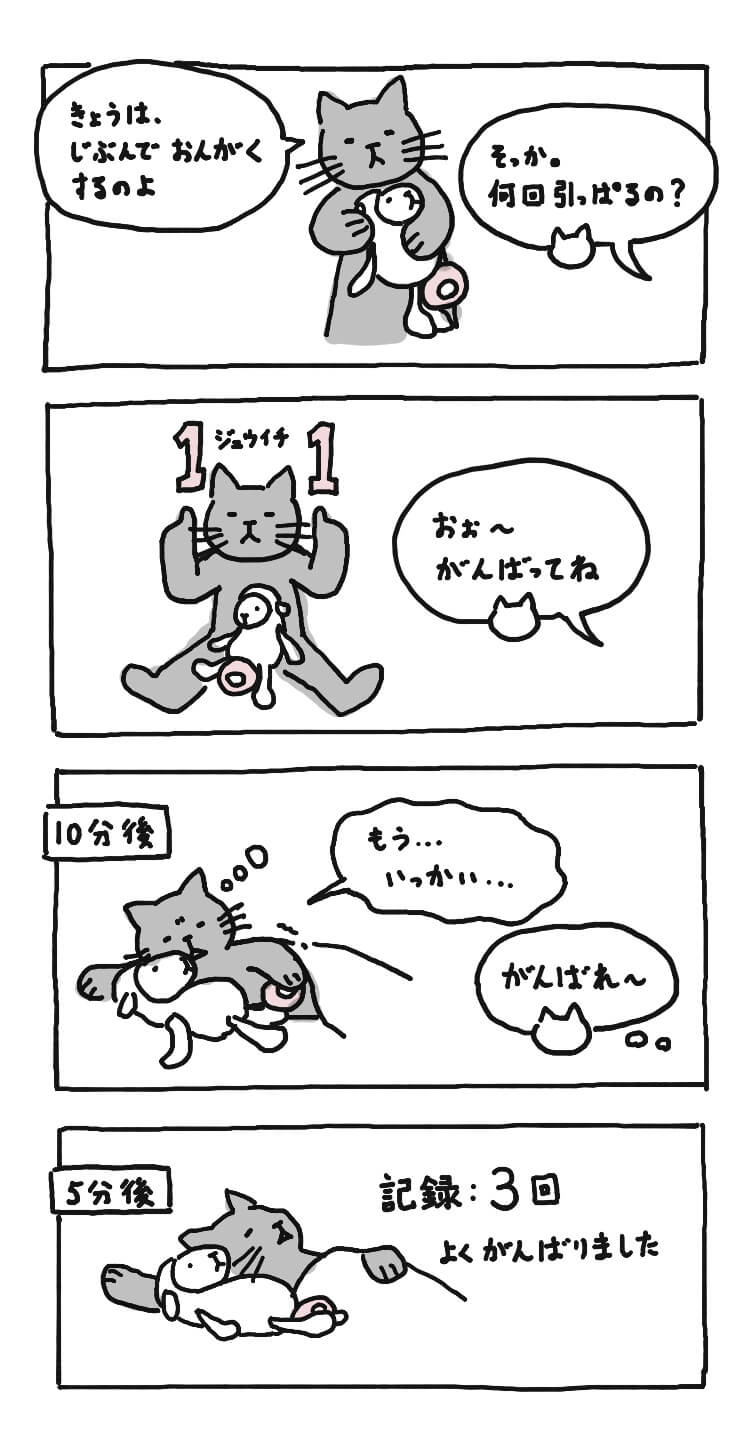 きょうは、
じぶんで おんがく
するのよ
そっか。
何回引っぱるの?
1 ジュウイチ 1
おぉ〜
がんばってね
10分後
もう...
いっかい...
がんばれ〜
5分後
記録:3回
よくがんばりました